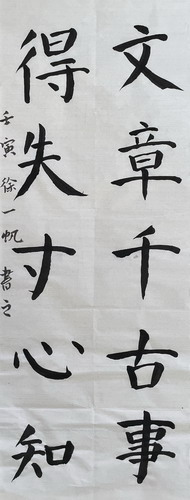 文章千古事
得失寸心知
壬寅徐一帆书之